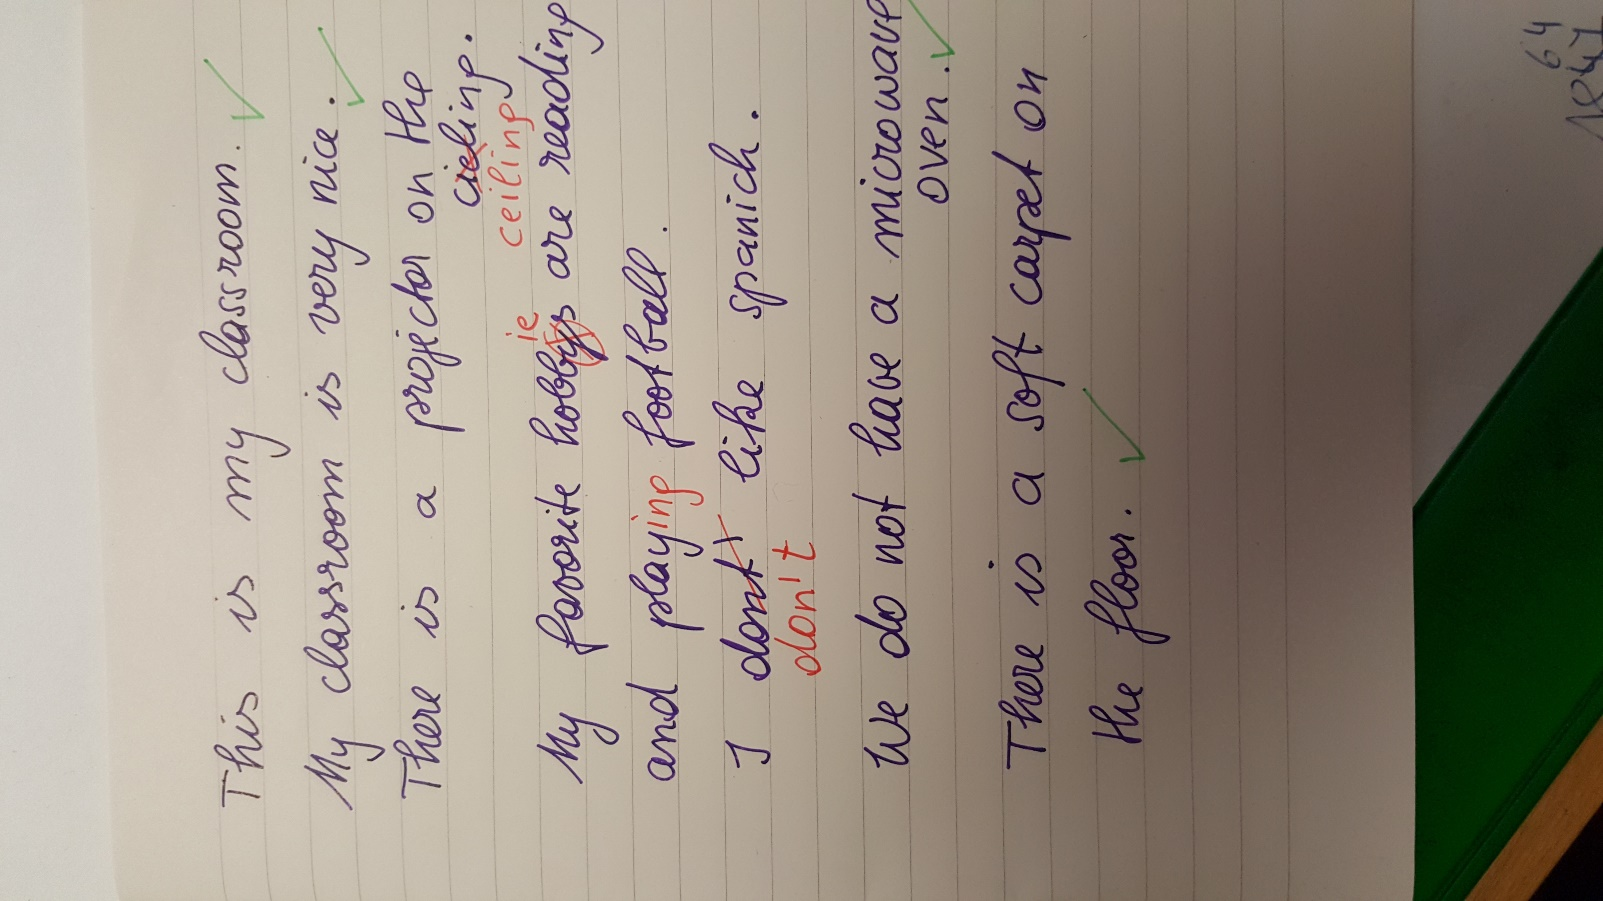 This is my classroom.
My classroom is very nice.
There is a projector on the
cieling.
ceiling
ie
My favorite hobbys are reading
and playing football.
I dont' like spanich.
don't
We do not have a microwave
oven.
There is a soft carpet on
the floor.
64